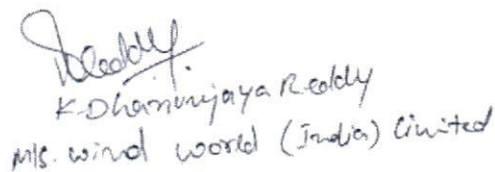 Reddy
K. Dhanunjaya Reddy
M/s. Wind World (India) Limited